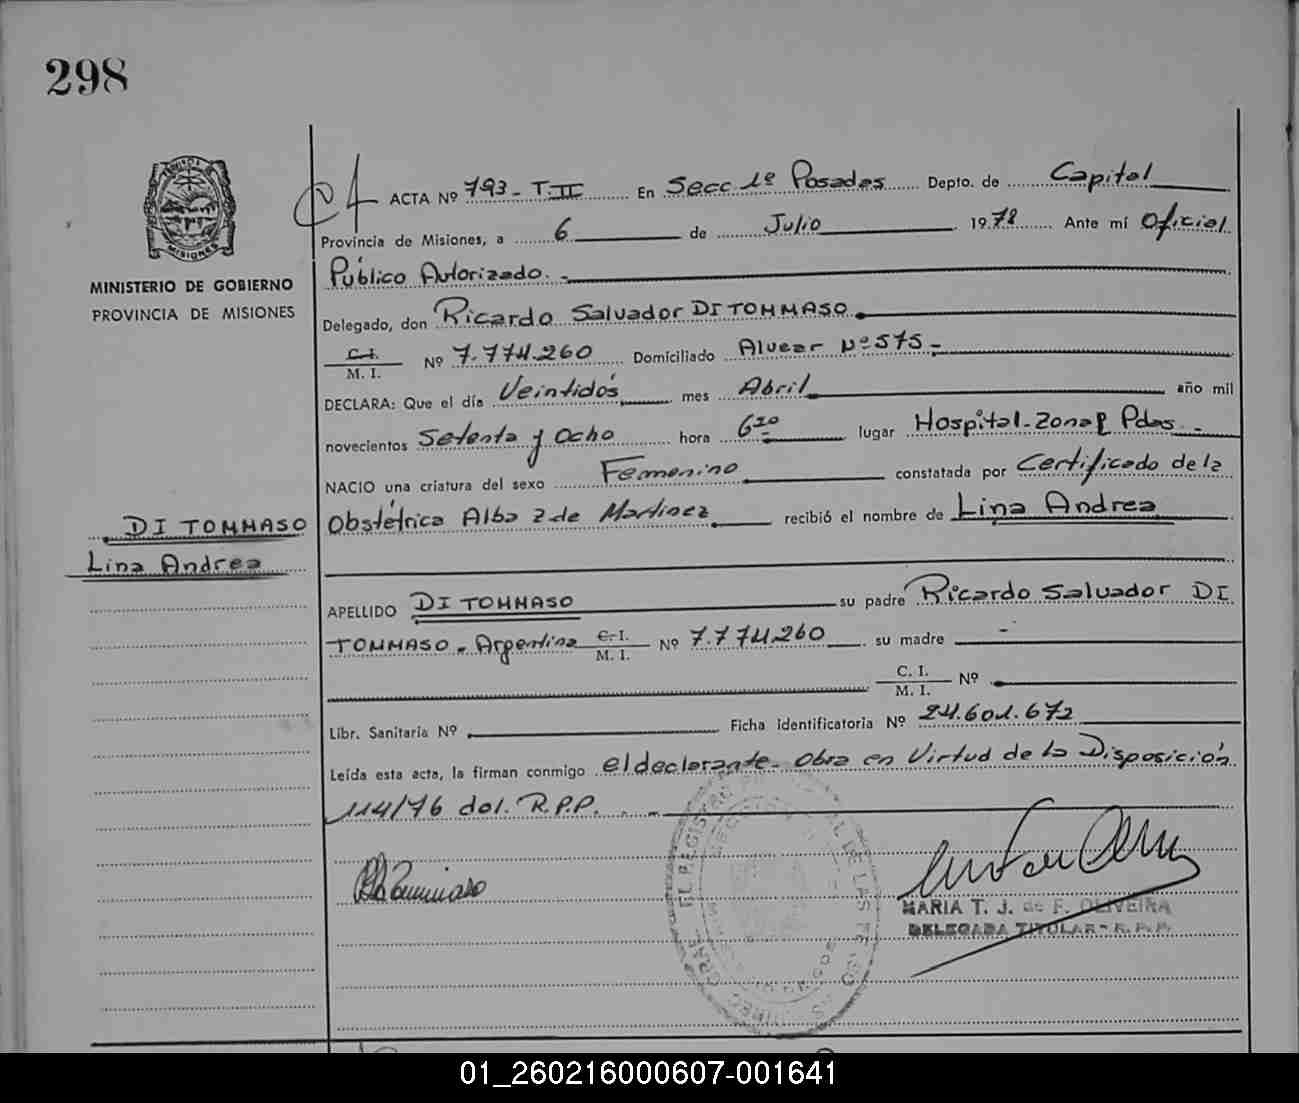 298
MISIONES
MINISTERIO DE GOBIERNO
PROVINCIA DE MISIONES
DI TOMMASO
Lina Andrea
ACTA Nº 793-T.II En Secc 1º Posadas Depto. de Capital
Provincia de Misiones, a 6 de Julio 1978 Ante mí Oficial
Público Autorizado.-
Delegado, don Ricardo Salvador DI TOMMASO
C.I. M.I. Nº 7.774.260 Domiciliado Alvear Nº 575-
DECLARA: Que el día Veintidós mes Abril año mil
novecientos Setenta y Ocho hora 6 20 lugar Hospital-Zonal Pdas.
NACIO una criatura del sexo Femenino constatada por Certificado de la
Obstétrica Alba Z de Martinez recibió el nombre de Lina Andrea
APELLIDO DI TOMMASO su padre Ricardo Salvador DI
TOMMASO. Argentina C.I. M.I. Nº 7.774.260 su madre -
C. I. M. I. Nº
Libr. Sanitaria Nº Ficha identificatoria Nº 24.601.672
Leída esta acta, la firman conmigo el declarante- Obra en Virtud de la Disposición
114/76 del. R.P.P. . -
MARIA T. J. de F. OLIVEIRA
DELEGADA TITULAR - R. P. P.
01_260216000607-001641